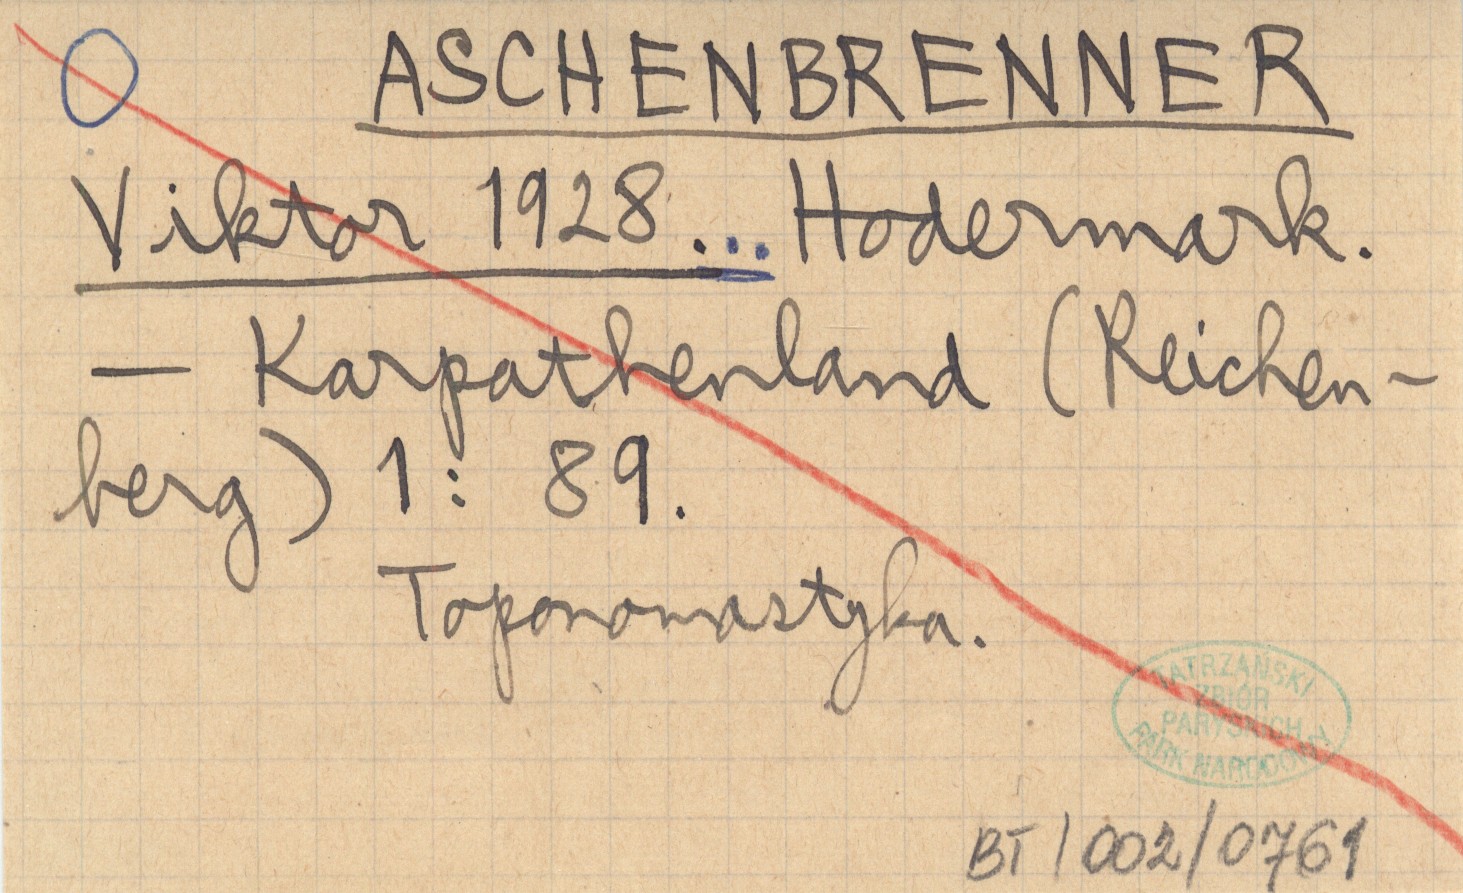 ASCHENBRENNER
Viktor 1928... Hodermark.
— Karpathenland (Reichen-
berg) 1: 89.
Toponomastyka.
TATRZAŃSKI
ZBIÓR
PARYSKICH
PARK NARODOWY
BT/002/0761